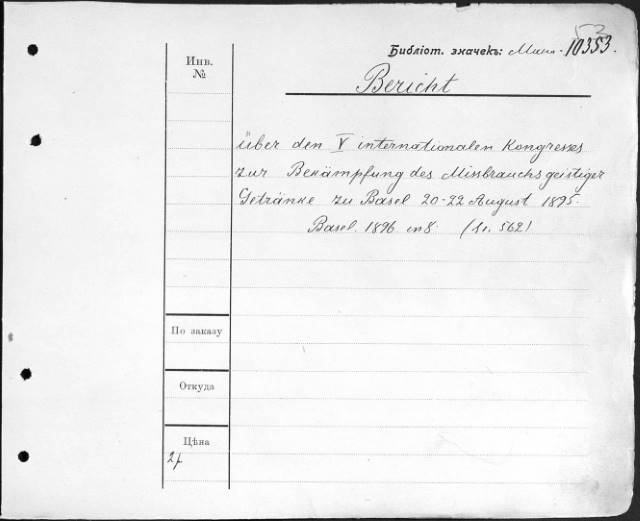 53
Библіот. значекъ: 10353.
Инв.
№
Bericht
über den V internationalen Kongresses
zur Bekämpfung des Missbrauchs geistiger
Getränke zu Basel 20-22 August 1895.
Basel. 1896 in 8.
По заказу
Откуда
Цѣна